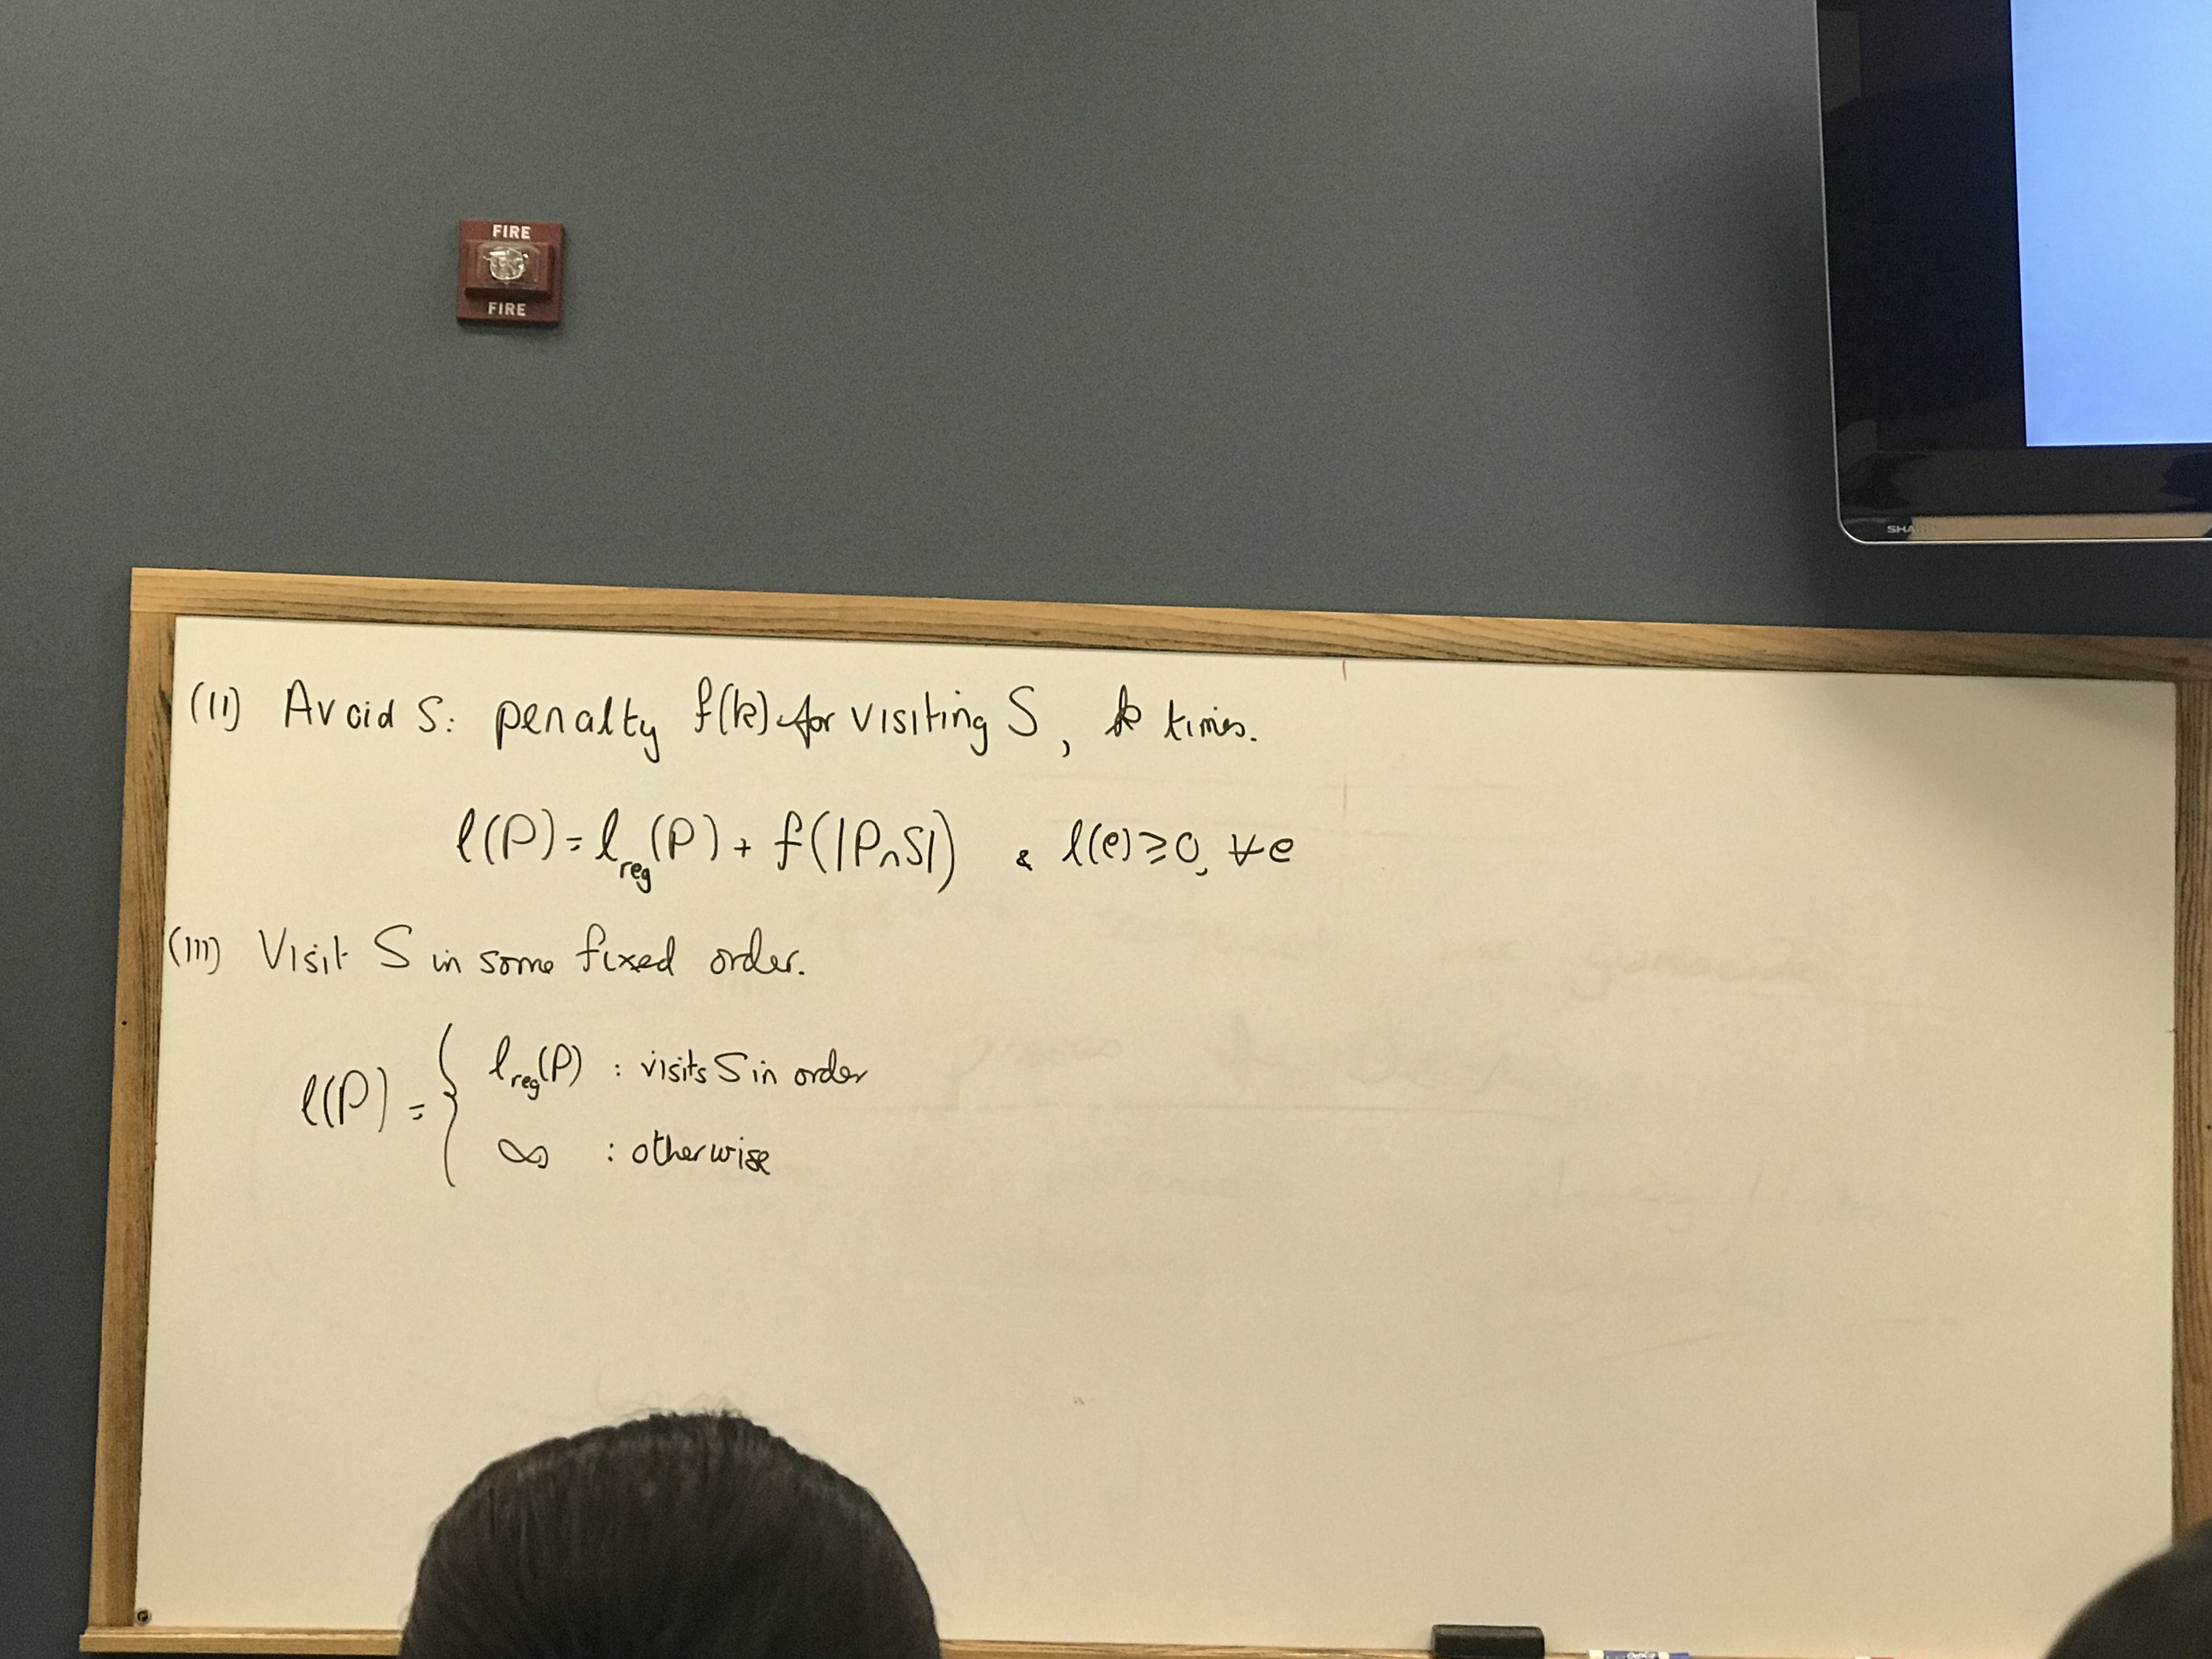 FIRE
FIRE
SHARP
(II) Avoid S: penalty f(k) for visiting S, k times.
l(P) = l_reg(P) + f(|P∩S|) & l(e) ≥ 0, ∀e
(III) Visit S in some fixed order.
l(P) = { l_reg(P) : visits S in order
∞ : otherwise